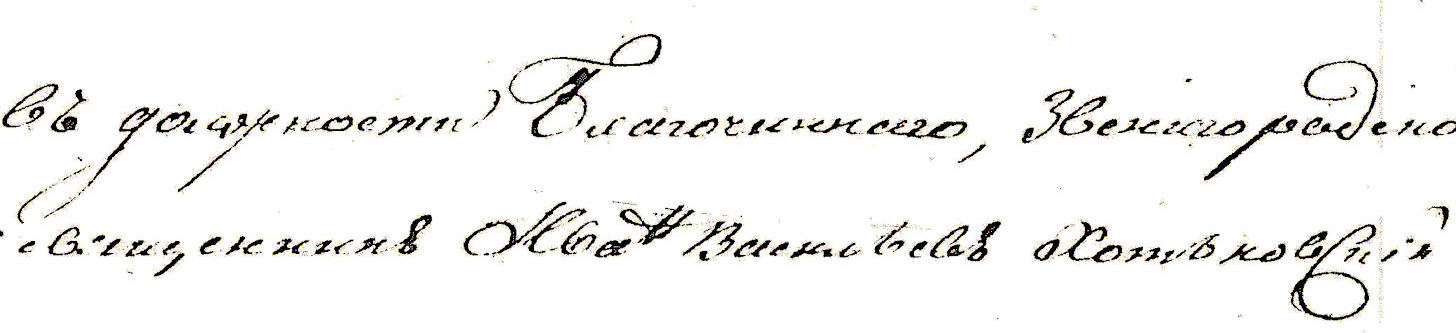 въ должности Благочиннаго, Звенигородско
священникъ Иваⁿ Васильевъ Хотьковскій